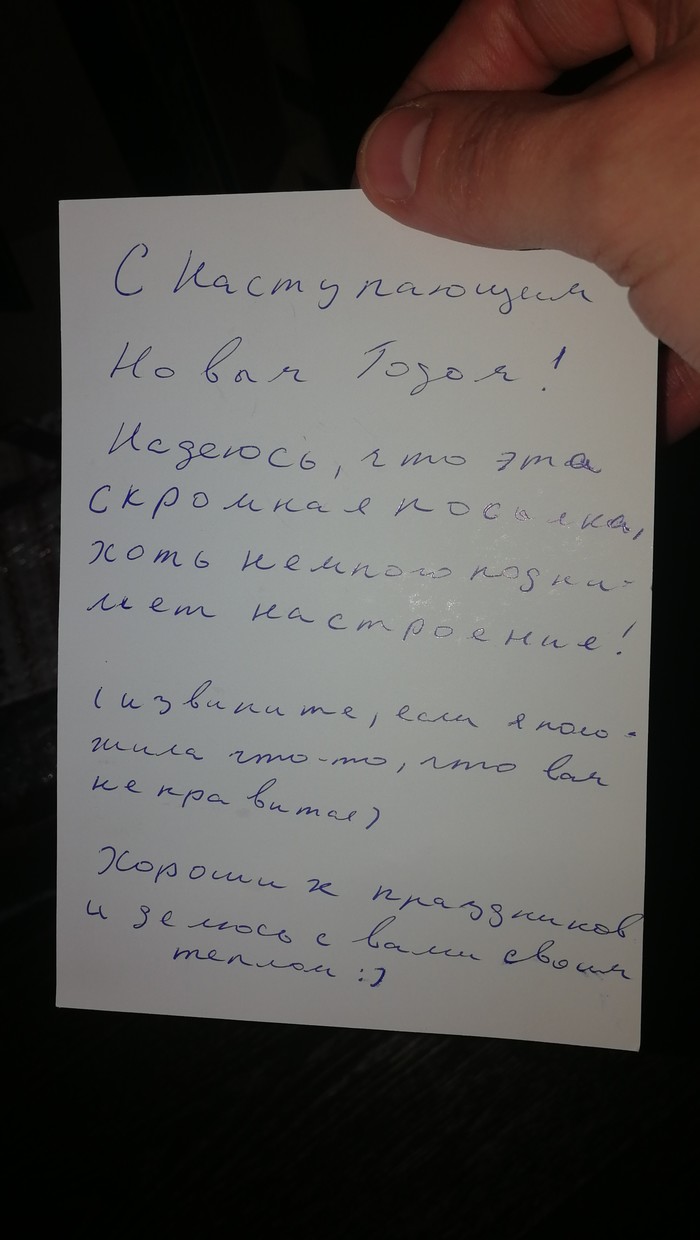 С Наступающим
Новым Годом!
Надеюсь, что эта
скромная посылка,
хоть немного подни-
мет настроение!
(извините, если я поло-
жила что-то, что вам
не нравится)
Хороших праздников
и делюсь с вами своим
теплом :)